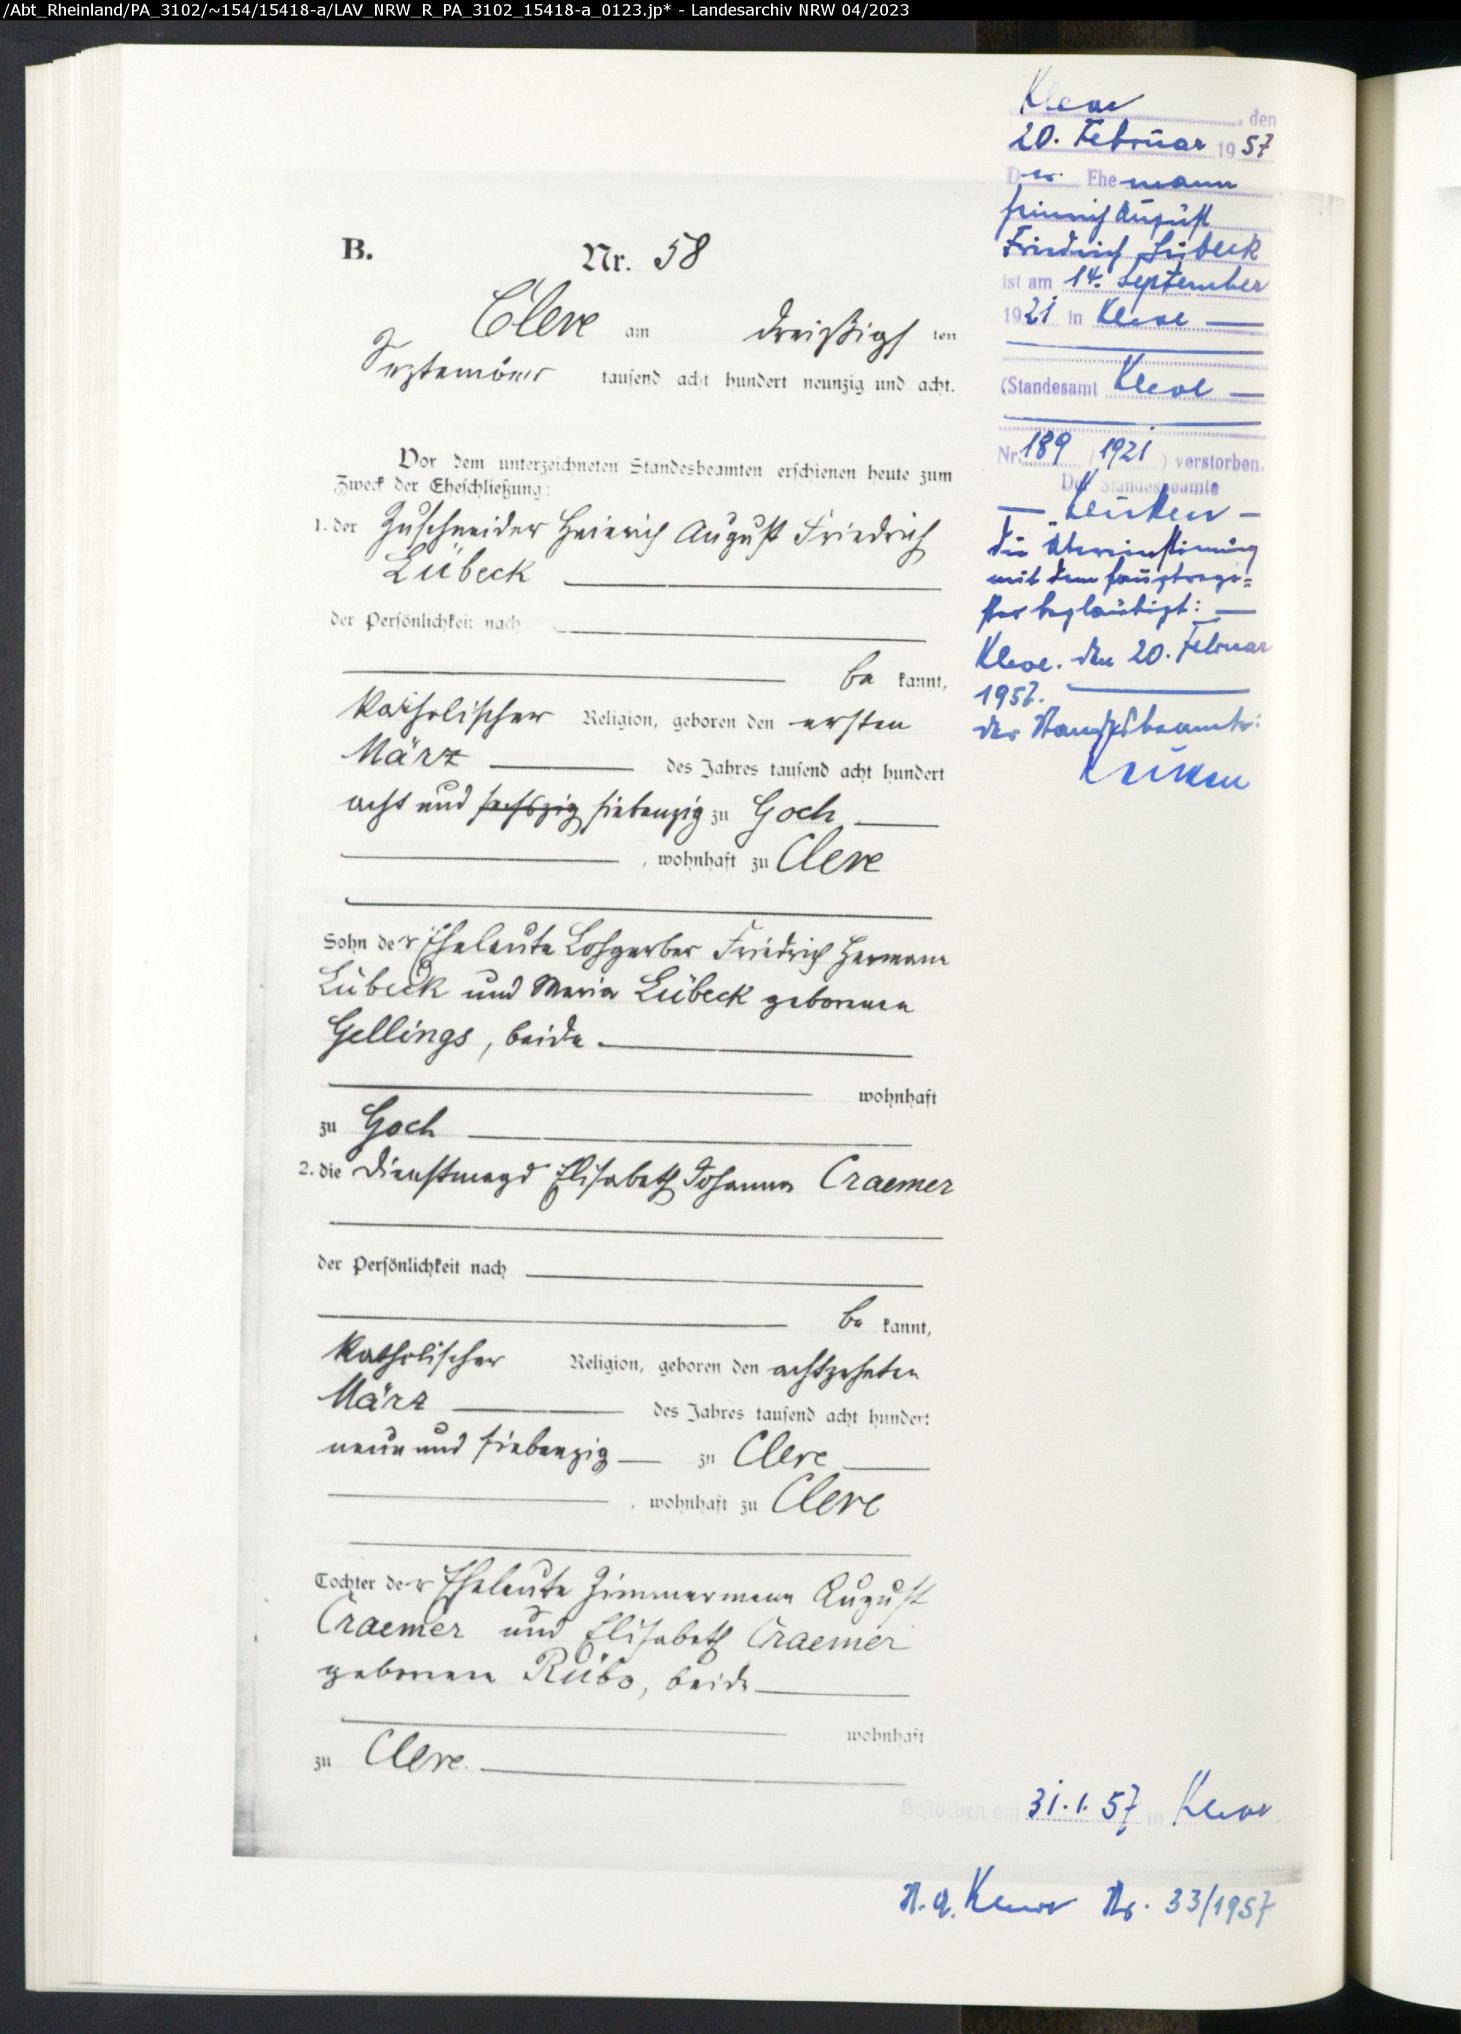 /Abt_Rheinland/PA_3102/~154/15418-a/LAV_NRW_R_PA_3102_15418-a_0123.jp* - Landesarchiv NRW 04/2023
B.
Nr. 58
Cleve am dreißigsten
September tausend acht hundert neunzig und acht.
Vor dem unterzeichneten Standesbeamten erschienen heute zum
Zweck der Eheschließung:
1. der Zuschneider Heinrich August Friedrich
Lübeck
der Persönlichkeit nach
be kannt,
katholischer Religion, geboren den ersten
März des Jahres tausend acht hundert
acht und sechszig siebenzig zu Goch
, wohnhaft zu Cleve
Sohn der Eheleute Lohgerber Friedrich Hermann
Lübeck und Maria Lübeck geborenen
Gellings, beide
wohnhaft
zu Goch
2. die Dienstmagd Elisabeth Johanna Craemer
der Persönlichkeit nach
be kannt,
katholischer Religion, geboren den achtzehnten
März des Jahres tausend acht hundert
neun und siebenzig zu Cleve
, wohnhaft zu Cleve
Tochter der Eheleute Zimmermann August
Craemer und Elisabeth Craemer
geborenen Rübo, beide
wohnhaft
zu Cleve.
Kleve, den
20. Februar 1957
Der Ehemann
Heinrich August
Friedrich Lübeck
ist am 14. September
1921 in Kleve
(Standesamt Kleve
Nr. 189 / 1921) verstorben.
Der Standesbeamte
Die Übereinstimmung
mit dem Hauptregi=
ster beglaubigt:
Kleve, den 20. Februar
1957.
Der Standesbeamte:
Gestorben am 31.1.57 in Kleve
St. A. Kleve Nr. 33/1957